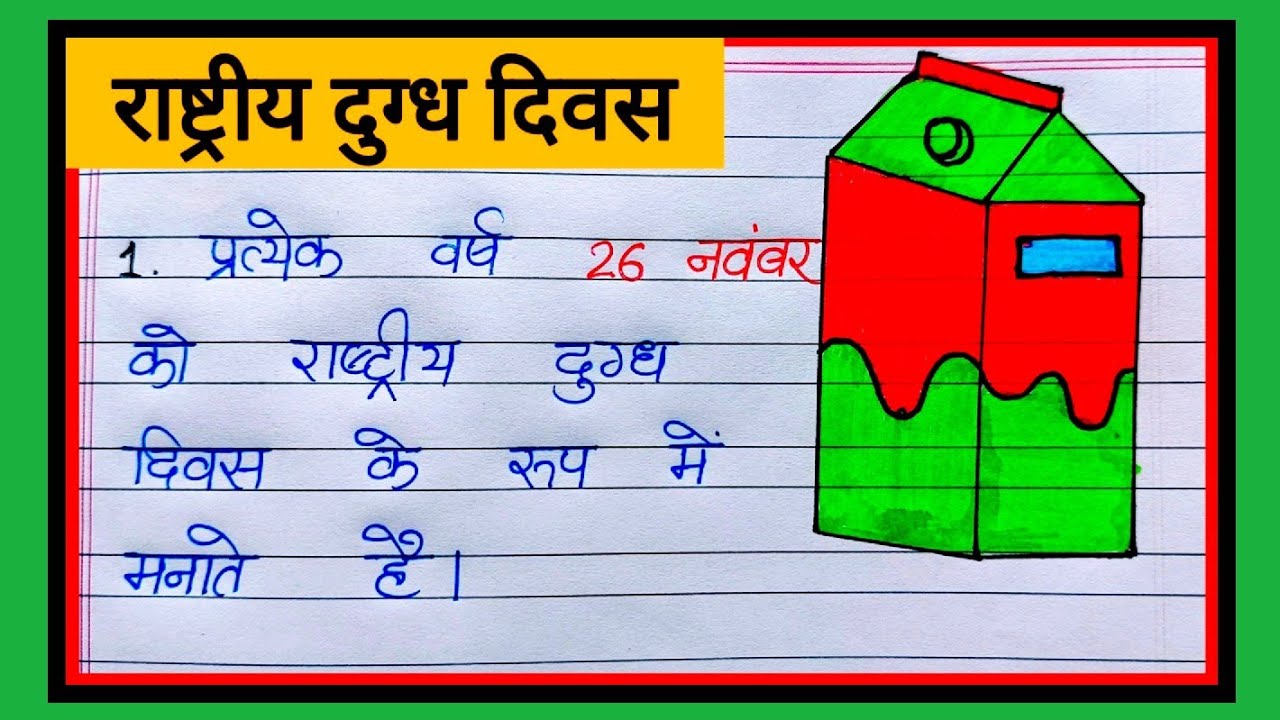 राष्ट्रीय दुग्ध दिवस
1. प्रत्येक वर्ष 26 नवंबर
को राष्ट्रीय दुग्ध
दिवस के रूप में
मनाते है।